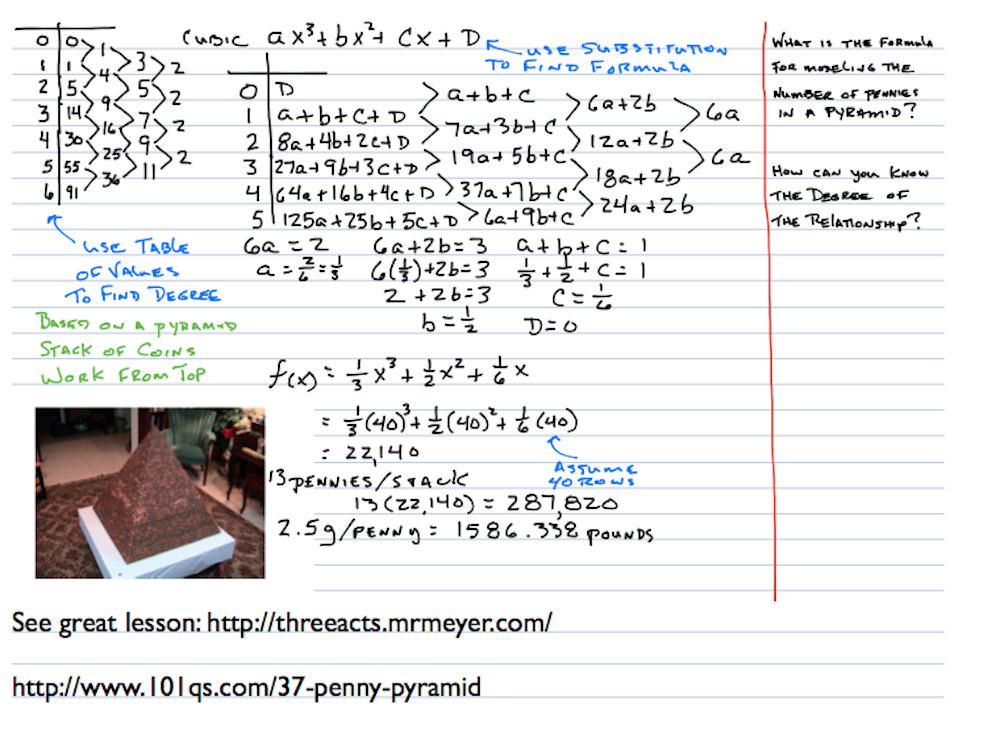 Cubic ax³+bx²+Cx+D
USE SUBSTITUTION
TO FIND FORMULA
0 | 0
1 | 1
2 | 5
3 | 14
4 | 30
5 | 55
6 | 91
1 4 9 16 25 36
3 5 7 9 11
2 2 2 2
USE TABLE
OF VALUES
TO FIND DEGREE
BASED ON A PYRAMID
STACK OF COINS
WORK FROM TOP
0 | D
1 | a+b+C+D
2 | 8a+4b+2c+D
3 | 27a+9b+3c+D
4 | 64a+16b+4c+D
5 | 125a+25b+5c+D
a+b+c
7a+3b+c
19a+5b+c
37a+7b+c
6a+9b+c
6a+2b
12a+2b
18a+2b
24a+2b
6a
6a
6a=2 6a+2b=3 a+b+c=1
a=2/6=1/3 6(1/3)+2b=3 1/3+1/2+c=1
2+2b=3 c=1/6
b=1/2 D=0
f(x)=1/3x³+1/2x²+1/6x
=1/3(40)³+1/2(40)²+1/6(40)
=22,140
ASSUME
40 ROWS
13 PENNIES/STACK
13(22,140)=287,820
2.5g/PENNY=1586.338 POUNDS
WHAT IS THE FORMULA
FOR MODELING THE
NUMBER OF PENNIES
IN A PYRAMID?
HOW CAN YOU KNOW
THE DEGREE OF
THE RELATIONSHIP?
See great lesson: http://threeacts.mrmeyer.com/
http://www.101qs.com/37-penny-pyramid